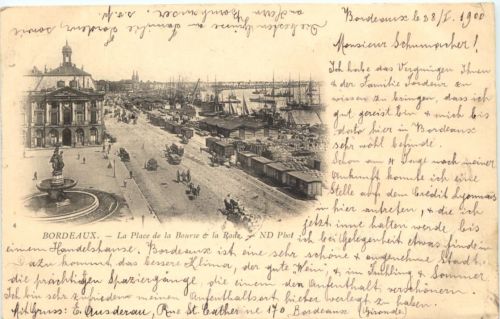 Bordeaux le 28/I. 1900
Monsieur Schumacher!
Ich habe das Vergnügen Ihnen
& der Familie
wissen zu bringen, dass ich
gut gereist bin & mich bis
dato hier in Bordeaux
sehr wohl befinde.
Schon am 4 Tage nach meiner
Ankunft konnte ich eine
Stelle auf dem Crédit Lyonnais
hier antreten, & die ich
jetzt inne halten werde, bis
ich bei Gelegenheit etwas finde in
einem Handelshause. Bordeaux ist eine sehr schöne & angenehme Stadt.
Dazu kommt das bessere Klima, der gute Wein, & im Frühling & Sommer
die prächtigen Spaziergänge, die einem den Aufenthalt verschönern.
Ich bin sehr zufrieden meinen Aufenthaltsort hieher verlegt zu haben.
Mit Gruss: E. Ausderau, Rue St Catherine 170, Bordeaux (Gironde)
BORDEAUX. - La Place de la Bourse & la Rade. - ND Phot
Die besten Grüsse an Familie
an Herrn